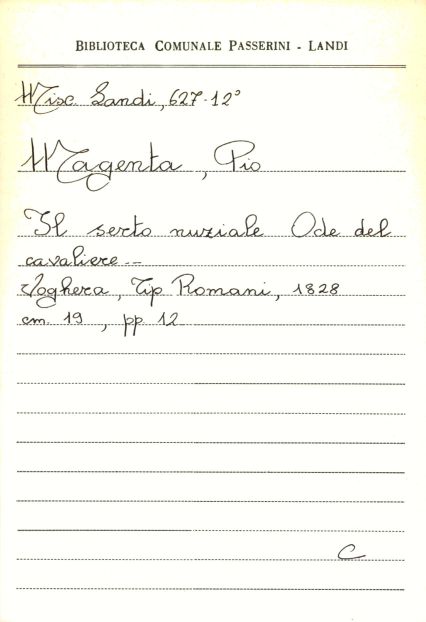 BIBLIOTECA COMUNALE PASSERINI - LANDI
Misc. Landi, 627.12°
Magenta, Pio
Il serto nuziale Ode del
cavaliere --
Voghera, Tip Romani, 1828
cm. 19, pp 12
C